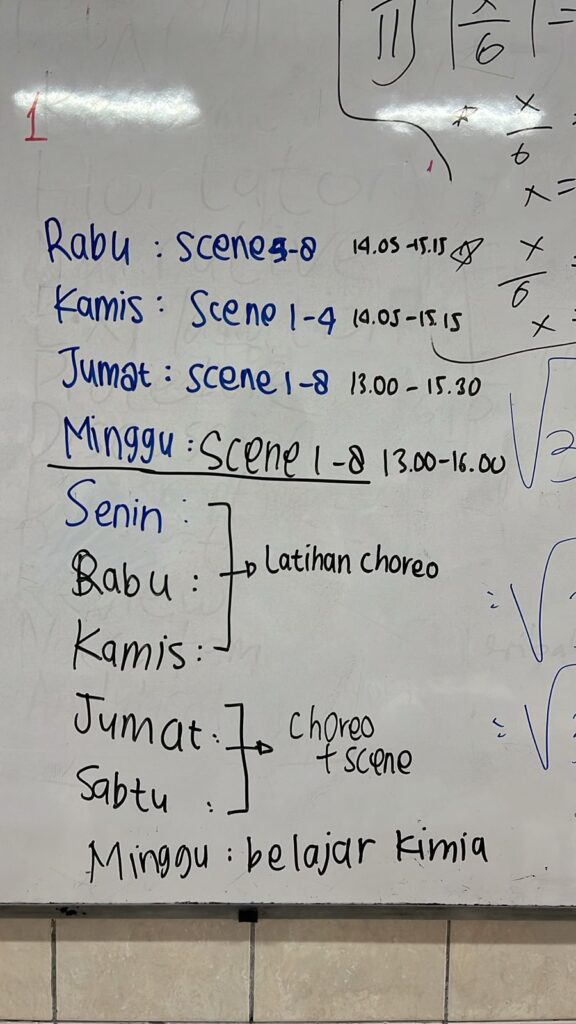 II) |x/6| =
x/6 =
x =
1
Rabu : Scene 5-8 14.05-15.15
x/6 =
Kamis : Scene 1-4 14.05-15.15
x =
Jumat : Scene 1-8 13.00-15.30
Minggu : Scene 1-8 13.00-16.00
Senin :
Rabu : Latihan choreo
Kamis :
Jumat : choreo
+ scene
Sabtu :
Minggu : belajar kimia